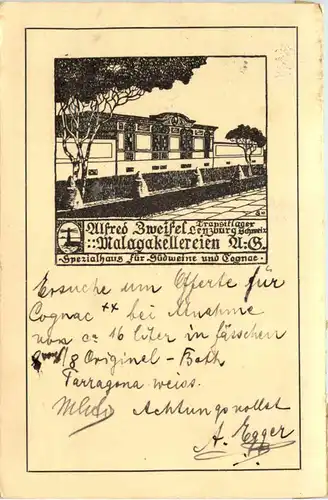 Alfred Zweifel Transitlager
Lenzburg Schweiz
::Malagakellereien A:G.
·Spezialhaus für Südweine und Cognac·
Ersuche um Offerte für
Cognac ** bei Abnahme
von ca 16 Liter in fässchen
1/8 Original-Both
Tarragona weiss.
Achtungsvollst
A. Egger